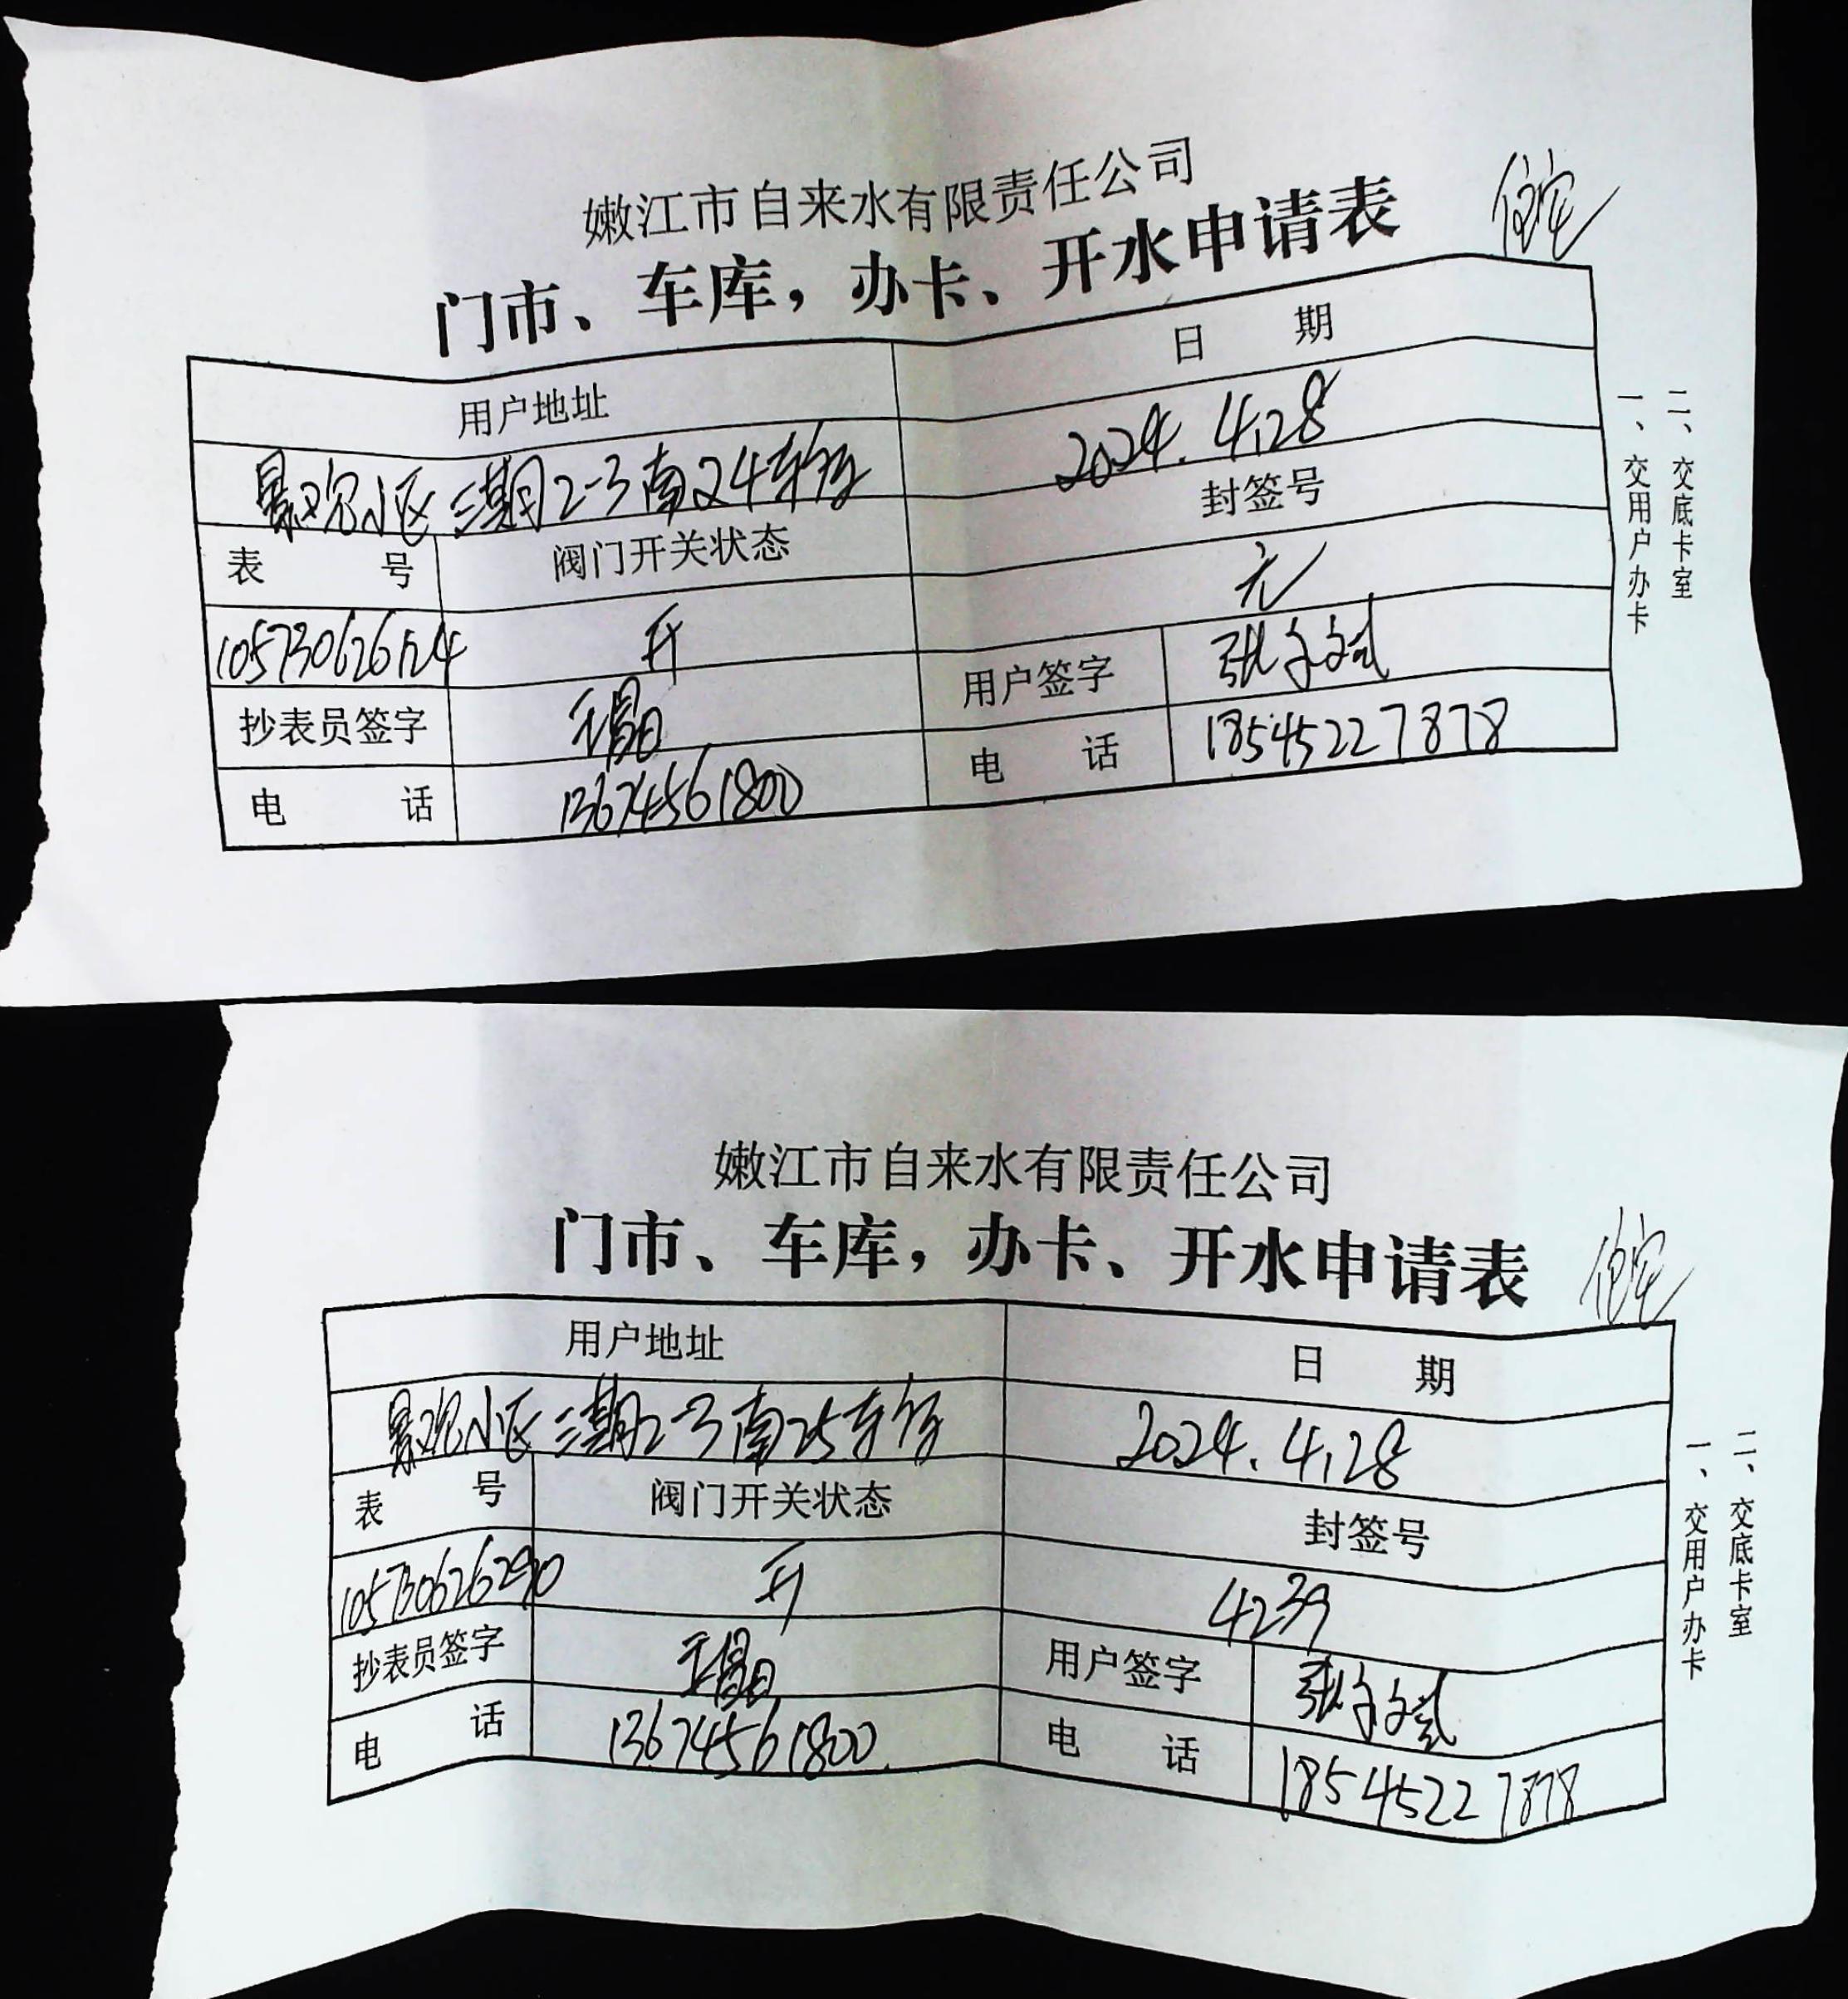 嫩江市自来水有限责任公司
门市、车库，办卡、开水申请表
住宅
用户地址 日 期
景观小区三期2-3南24车库 2024.4.28
表 号 阀门开关状态 封签号
105730626124 开 无
抄表员签字 王晶 用户签字 张
电 话 13674561800 电 话 18545227878
一、交用户办卡
二、交底卡室
嫩江市自来水有限责任公司
门市、车库，办卡、开水申请表
住宅
用户地址 日 期
景观小区三期2-3南25车库 2024.4.28
表 号 阀门开关状态 封签号
105730626290 开 4239
抄表员签字 王晶 用户签字 张
电 话 13674561800 电 话 18545227878
一、交用户办卡
二、交底卡室